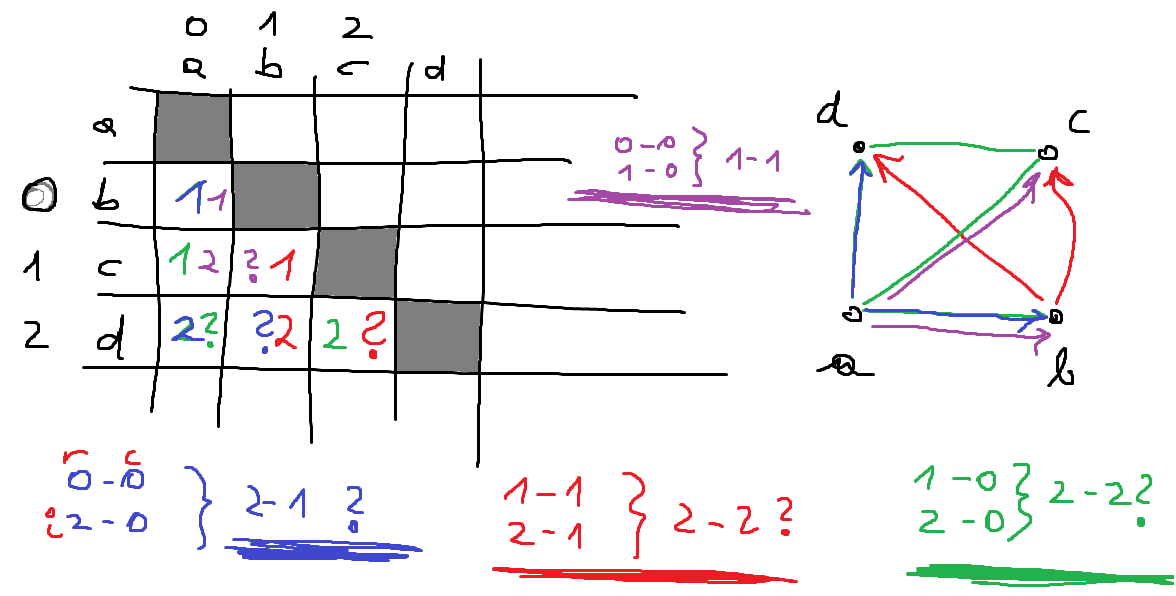 0 1 2
a b c d
a
0 b 1 1
1 c 1 2 ? 1
2 d 2 ? ? 2 2 ?
0-0
1-0 } 1-1
d c
a b
r c
0-0
i 2-0 } 2-1 ?
1-1
2-1 } 2-2 ?
1-0
2-0 } 2-2 ?